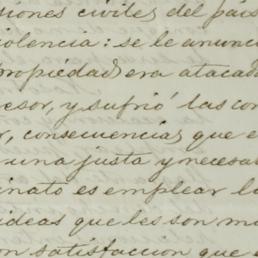 siones civiles del país
violencia: se le anunci
propiedad era atacad
esor, y sufrió las con
r, consecuencias que e
una justa y necesa
inato es emplear l
ideas que les son m
on satisfaccion que